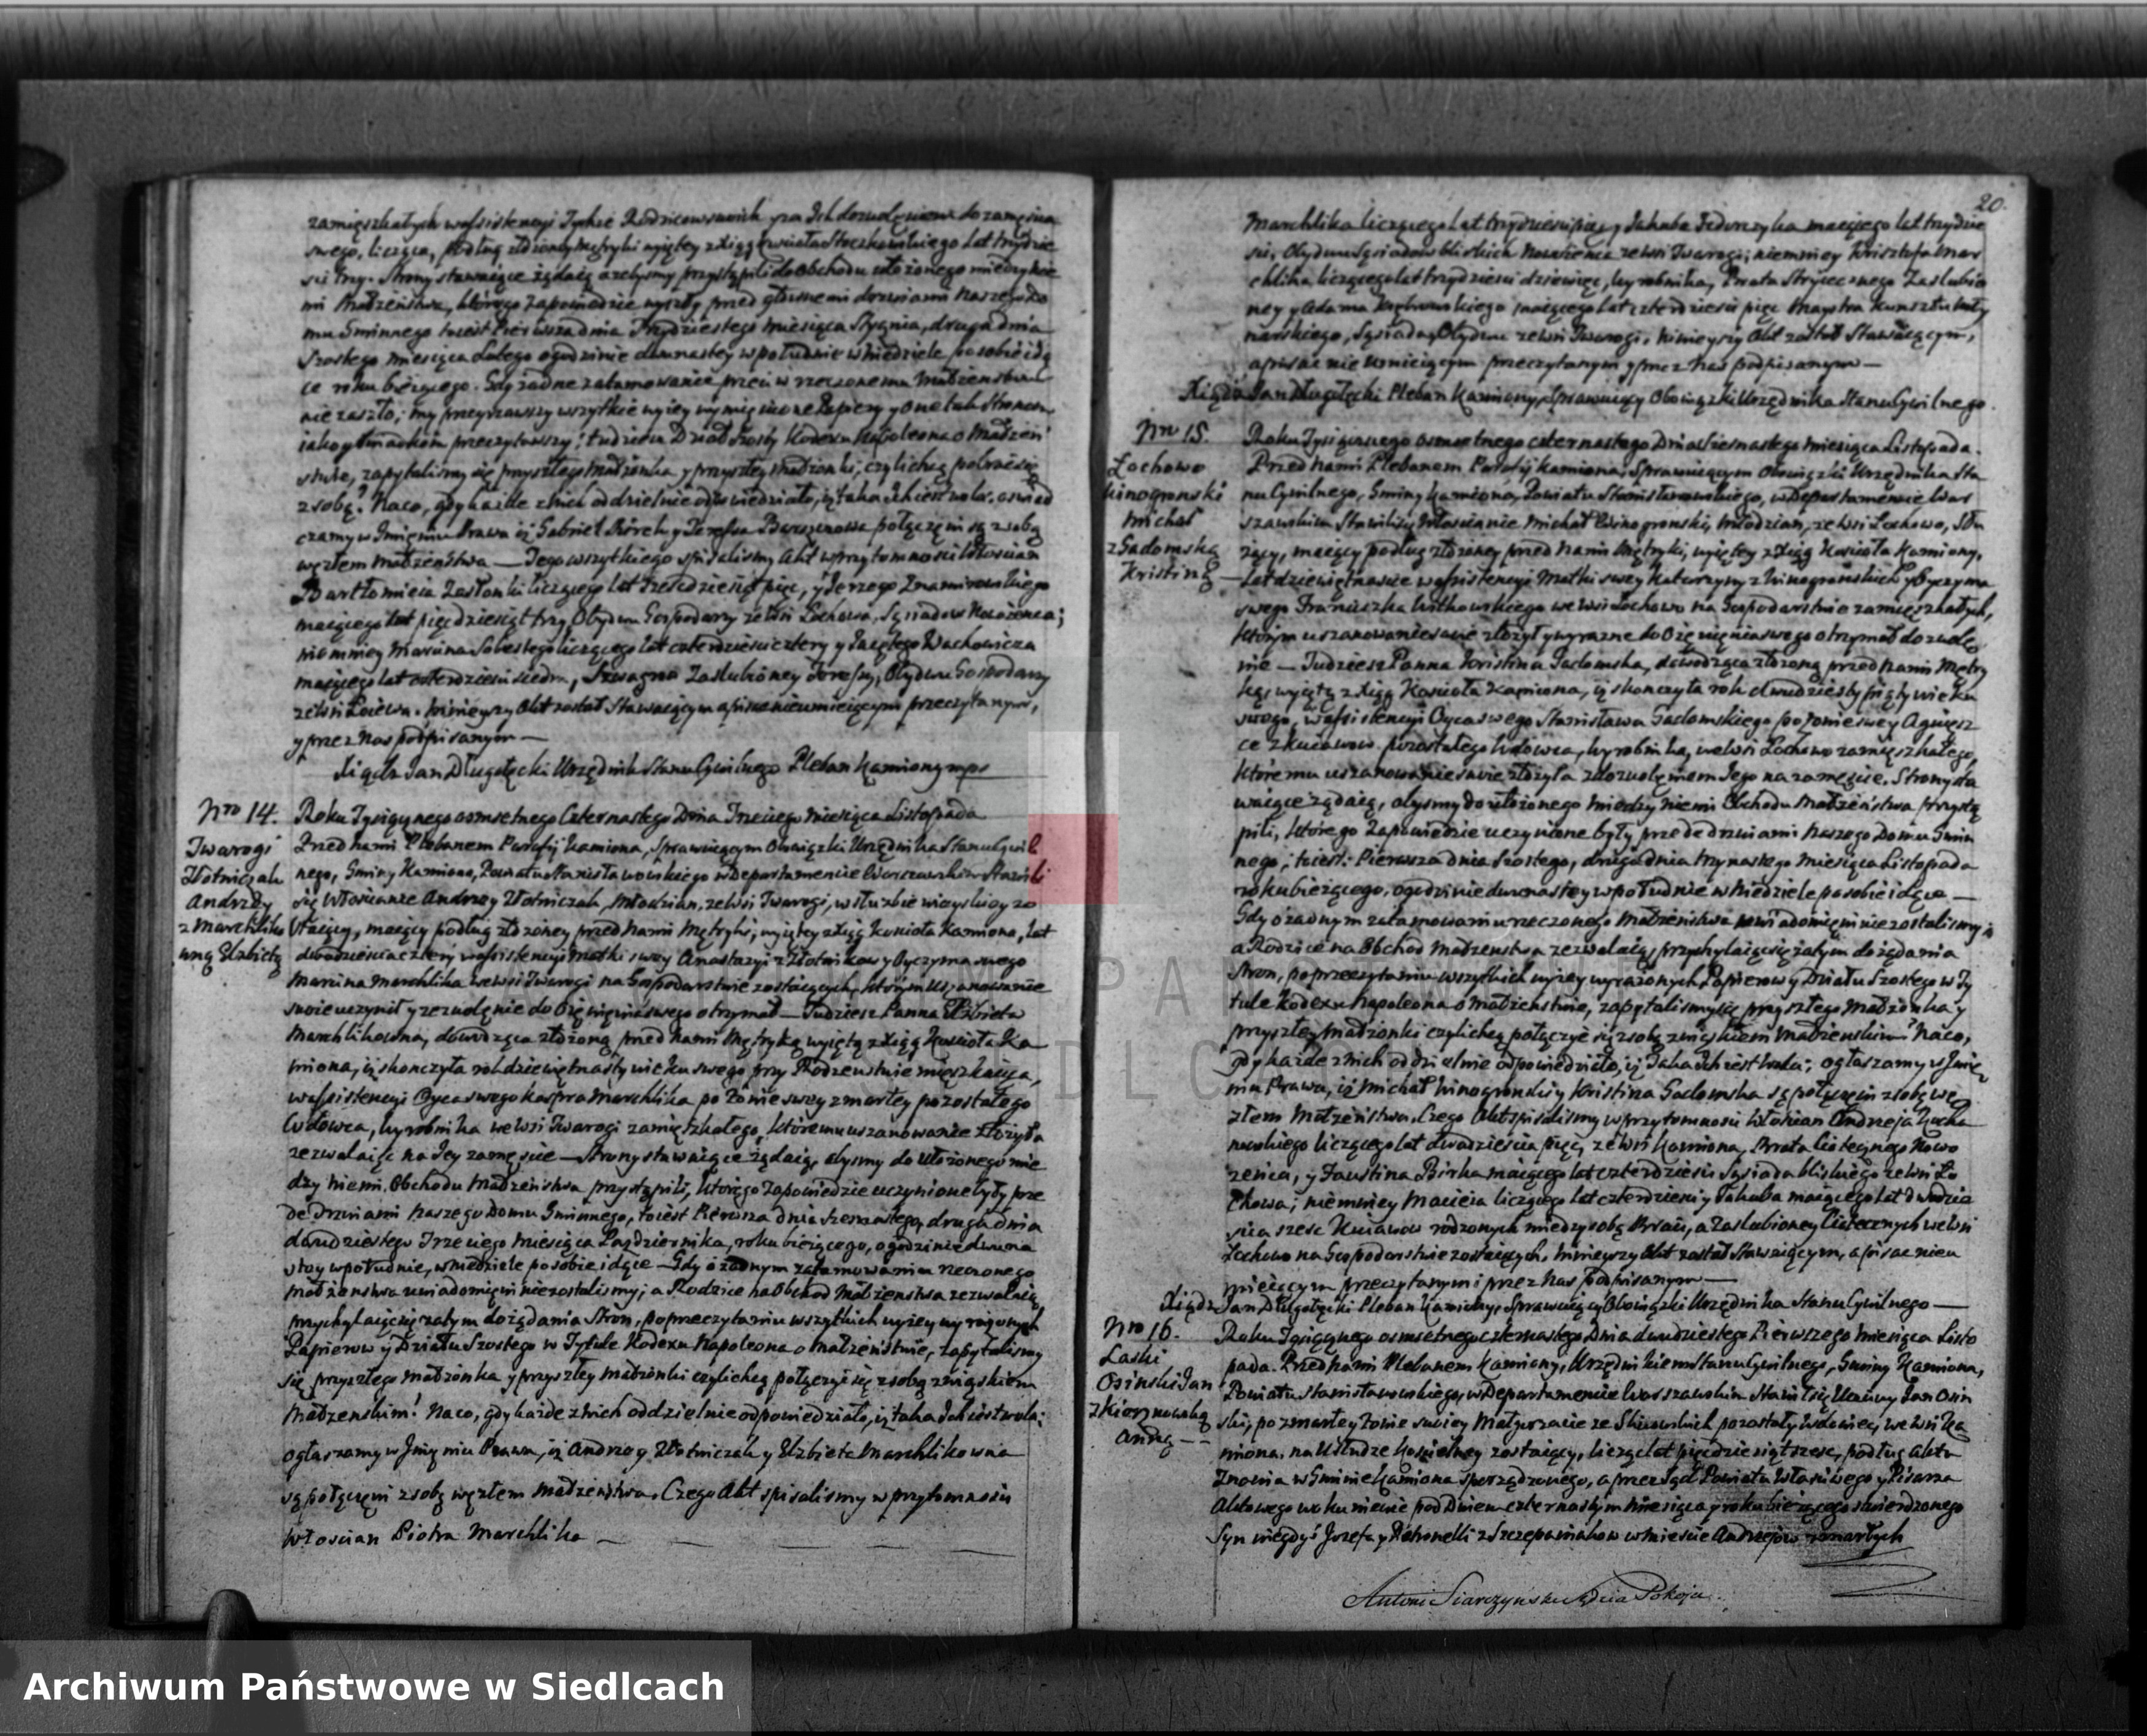 zamięszkałych w assistencyi Tychże Rodzicow swoich y za Ich dozwoleniem do zamęscia
swego, licząca, podług złożoney Metryki wyiętey z Xiąg Kościoła Stoczkowskiego Lat trzydzie
sci trzy. Strony stawaiące żądaią ażebyśmy przystąpili do obchodu ułożonego między nie
mi Małżeństwa, którego zapowiedzie wyszły przed głównemi drzwiami naszego Do
mu Gminnego to iest Pierwsza dnia Trzydziestego Miesiąca Stycznia, druga dnia
Szostego Miesiąca Lutego o godzinie dwunastey w południe w Niedziele po sobie idą
ce roku bieżącego. Gdy żadne zatamowanie przeciw rzeczonemu Małżeństwu
nie zaszło; my przeyrzawszy wszytkie wyżey wymięnione Papiery y one tak Stronom
iako y Swiadkom przeczytawszy; tudzież Dział Szosty Kodexu Napoleona o Małżeń
stwie, zapytalismy się przyszłego Małżonka y przyszłey Małżonki, czyli chcą pobrać się
z sobą? Na co, gdy każde z nich oddzielnie odpowiedziało, iż taka ich iest wola: oswiad
czamy w Imięniu Prawa iż Gabriel Borek y Teressa połączęni są z sobą
węzłem Małżeństwa — Tego wszytkiego spisalismy Akt w przytomnosci Włoscian
Bartłomieia Zasłonki liczącego lat sześćdziesiąt pięć, y Jerzego Znamirowskiego
maiącego lat pięćdziesiąt trzy Obydwu Gospodarzy ze Wsi Łochowa, Sąsiadow Nowożenca;
niemniey Marcina Sobestego liczącego lat czterdziesci cztery y Wachowicza
maiącego lat czterdziesci siedm, Szwagra Zaslubioney Teressy, Obydwu Gospodarzy
ze Wsi Łoiewa. Ninieyszy Akt został Stawaiącym a pisac nieumieiącym przeczytanym,
y przez nas podpisanym —
Xiądz Jan Długołęcki Urzędnik Stanu Cywilnego Pleban Kamiony mpr
Nro 14.
Twarogi
Złotniczak
Andrzey
z Marchliko
wną Elzbietą
Roku Tysiącznego osmsetnego Czternastego Dnia Trzeciego Miesiąca Listopada
Przed nami Plebanem Parafij Kamiona, Sprawuiącym Obowiązki Urzędnika Stanu Cywil
nego, Gminy Kamiona, Powiatu Stanisławowskiego w Departamencie Warszawskim Stawili
się Włoscianie Andrzey Złotniczak, Młodzian, ze Wsi Twarogi, w służbie wieyskiey zo
staiący, maiący podług złożoney przed nami Metryki, wyiętey z Xiąg Kościoła Kamiona, lat
dwadziescia cztery w assistencyi Matki swey Anastazyi z Złotnikow y Oyczyma swego
Marcina Marchlika we Wsi Twarogi na Gospodarstwie zostaiących, którym uszanowanie
swoie uczynił y zezwolęnie do Ożęnięnia swego otrzymał — Tudziesz Panna Elżbieta
Marchlikowna, dowodząca złożoną przed nami Metryką wyiętą z Xiąg Kościoła Ka
miona, iż skonczyła rok dziewiętnasty wieku swego przy Rodzenstwie mięszkaiąca,
w assistencyi Oyca swego Kaspra Marchlika po Żonie swey zmarłey pozostałego
Wdowca, Wyrobnika we Wsi Twarogi zamięszkałego, ktoremu uszanowanie złożyła
zezwalaiąc na Jey zamęscie — Strony stawaiące żądaią, abysmy do ułożonego mie
dzy niemi Obchodu Małżeństwa przystąpili, którego Zapowiedzie uczynione były prze
de Drzwiami Naszego Domu Gminnego, to iest Pierwsza dnia szesnastego, druga dnia
dwudziestego Trzeciego Miesiąca Października, roku bieżącego, o godzinie dwuna
stey w południe, w Niedziele po sobie idące — Gdy o żadnym zatamowaniu rzeczonego
Małżeństwa uwiadomięni niezostalismy; a Rodzice na Obchod Małżenstwa zezwalaią,
przychylaiąc się zatym do żądania Stron, po przeczytaniu wszytkich wyżey wyrażonych
Papierow y Działu Szostego w Tytule Kodexu Napoleona o Małżeństwie, zapytalismy
się przyszłego Małżonka y przyszłey Małżonki czyli chcą połączyć się z sobą związkiem
Małżenskim? Na co, gdy każde z nich oddzielnie odpowiedziało, iż taka Ich iest wola;
ogłaszamy w Imięniu Prawa, iż Andrzey Złotniczak y Elzbieta Marchlikowna
są połączęni z sobą węzłem Małżeństwa. Czego Akt spisalismy w przytomnosci
Włoscian Piotra Marchlika
20.
Marchlika liczącego lat trzydziesci pięć y Jakuba Fedorczyka maiącego lat trzydzie
sci, Obydwu Sąsiadow bliskich Nowożenca ze Wsi Twarogi; niemniey Krisztofa Mar
chlika liczącego lat trzydziesci dziewięć, Wyrobnika, Brata Stryiecznego Zaslubio
ney y Adama maiącego lat czterdziesci pięć Maystra Kunsztu
narskiego, Sąsiada, Obydwu ze Wsi Twarogi. Ninieyszy Akt został Stawaiącym,
a pisac nie umieiącym przeczytanym y przez nas podpisanym —
Xiądz Jan Długołęcki Pleban Kamiony, Sprawuiący Obowiązki Urzędnika Stanu Cywilnego
Nro 15.
Łochowo
Winogronski
Michał
z Gadomską
Kristiną —
Roku Tysiącznego osmsetnego czternastego Dnia Miesiąca Listopada.
Przed nami Plebanem Parafij Kamiona, Sprawuiącym Obowiązki Urzędnika Sta
nu Cywilnego, Gminy Kamiona, Powiatu Stanisławowskiego, w Departamencie War
szawskim Stawili się Włoscianie Michał Winogronski, Młodzian, ze Wsi Łochowo, Słu
żący, maiący podług złożoney przed nami Metryki, wyiętey z Xiąg Kościoła Kamiony,
Lat dziewiętnascie w assistencyi Matki swey Katarzyny z Winogrońskich y Oyczyma
swego Franciszka Witkowskiego we Wsi Łochowo na Gospodarstwie zamięszkałych,
którym uszanowanie swoie złożył y wyrazne do Ożęnięnia swego otrzymał dozwole
nie — Tudziesz Panna Kristina Gadomska, dowodząca złożoną przed nami Metry
ką, wyiętą z Xiąg Kościoła Kamiona, iż skonczyła rok dwudziesty piąty wieku
swego, w assistencyi Oyca swego Stanisława Gadomskiego po Żonie swey Agniesz
ce z Kuiawow pozostałego Wdowca, Wyrobnika, we Wsi Łochowo zamięszkałego,
któremu uszanowanie swoie złożyła z dozwolęniem Jego na zamęscie. Strony sta
waiące żądaią, abysmy do ułożonego między niemi Obchodu Małżeństwa przystą
pili, którego Zapowiedzie uczynione były przede drzwiami Naszego Domu Gmin
nego; to iest: Pierwsza dnia szostego, druga dnia trzynastego Miesiąca Listopada
roku bieżącego, o godzinie dwunastey w południe w Niedziele po sobie idące —
Gdy o żadnym zatamowaniu rzeczonego Małżeństwa uwiadomięni niezostalismy;
a Rodzice na Obchod Małżenstwa zezwalaią, przychylaiąc się zatym do żądania
Stron, po przeczytaniu wszytkich wyżey wyrażonych Papierow y Działu Szostego w Ty
tule Kodexu Napoleona o Małżenstwie, zapytalismy się przyszłego Małżonka y
przyszłey Małżonki czyli chcą połączyć się z sobą związkiem Małżenskim? Na co,
gdy każde z nich oddzielnie odpowiedziało, iż Taka Ich iest wola; ogłaszamy w Imię
niu Prawa, iż Michał Winogronski y Kristina Gadomska są połączęni z sobą wę
złem Małżeństwa. Czego Akt spisalismy w przytomnosci Włoscian Andrzeja
liczącego lat dwadziescia pięć, ze Wsi Kamiona, Brata Ciotecznego Nowo
żenca, y Faustina Birka maiącego lat czterdziesci Sąsiada bliskiego ze Wsi Ło
chowa; niemniey Macieia liczącego lat czterdziesci y Jakuba maiącego lat dwadzie
scia szesc Kuiawow rodzonych między sobą Braci, a Zaslubioney Ciotecznych we Wsi
Łochowo na Gospodarstwie zostaiących. Ninieyszy Akt został Stawaiącym, a pisac nieu
mieiącym przeczytanym i przez nas podpisanym —
Xiądz Jan Długołęcki Pleban Kamiony, Sprawuiący Obowiązki Urzędnika Stanu Cywilnego —
Nro 16.
Laski
Osinski Jan
z Kiornowską
Anną — —
Roku Tysiącznego osmsetnego czternastego Dnia dwudziestego Pierwszego Miesiąca Listo
pada. Przed nami Plebanem Kamiony, Urzędnikiem Stanu Cywilnego, Gminy Kamiona,
Powiatu Stanisławowskiego, w Departamencie Warszawskim Stawił się Uczciwy Jan Osin
ski, po zmarłey Żonie swoiey Małgorzacie ze pozostały Wdowiec, we Wsi Ka
miona, na Usłudze Kościelney zostaiący, liczący lat pięćdziesiąt szesc, podług Aktu
Znania w Gminie Kamiona sporządzonego, a przez Sąd Powiatu Własciwego y Pisarza
Aktowego w pod Dniem czternastym Miesiąca y roku bieżącego stwierdzonego
Syn niegdyś Jozefa y Petronelli z Szczepaniakow w Miescie Andrzejow zmarłych
Antoni Siarczyński Sędzia Pokoju
Archiwum Państwowe w Siedlcach